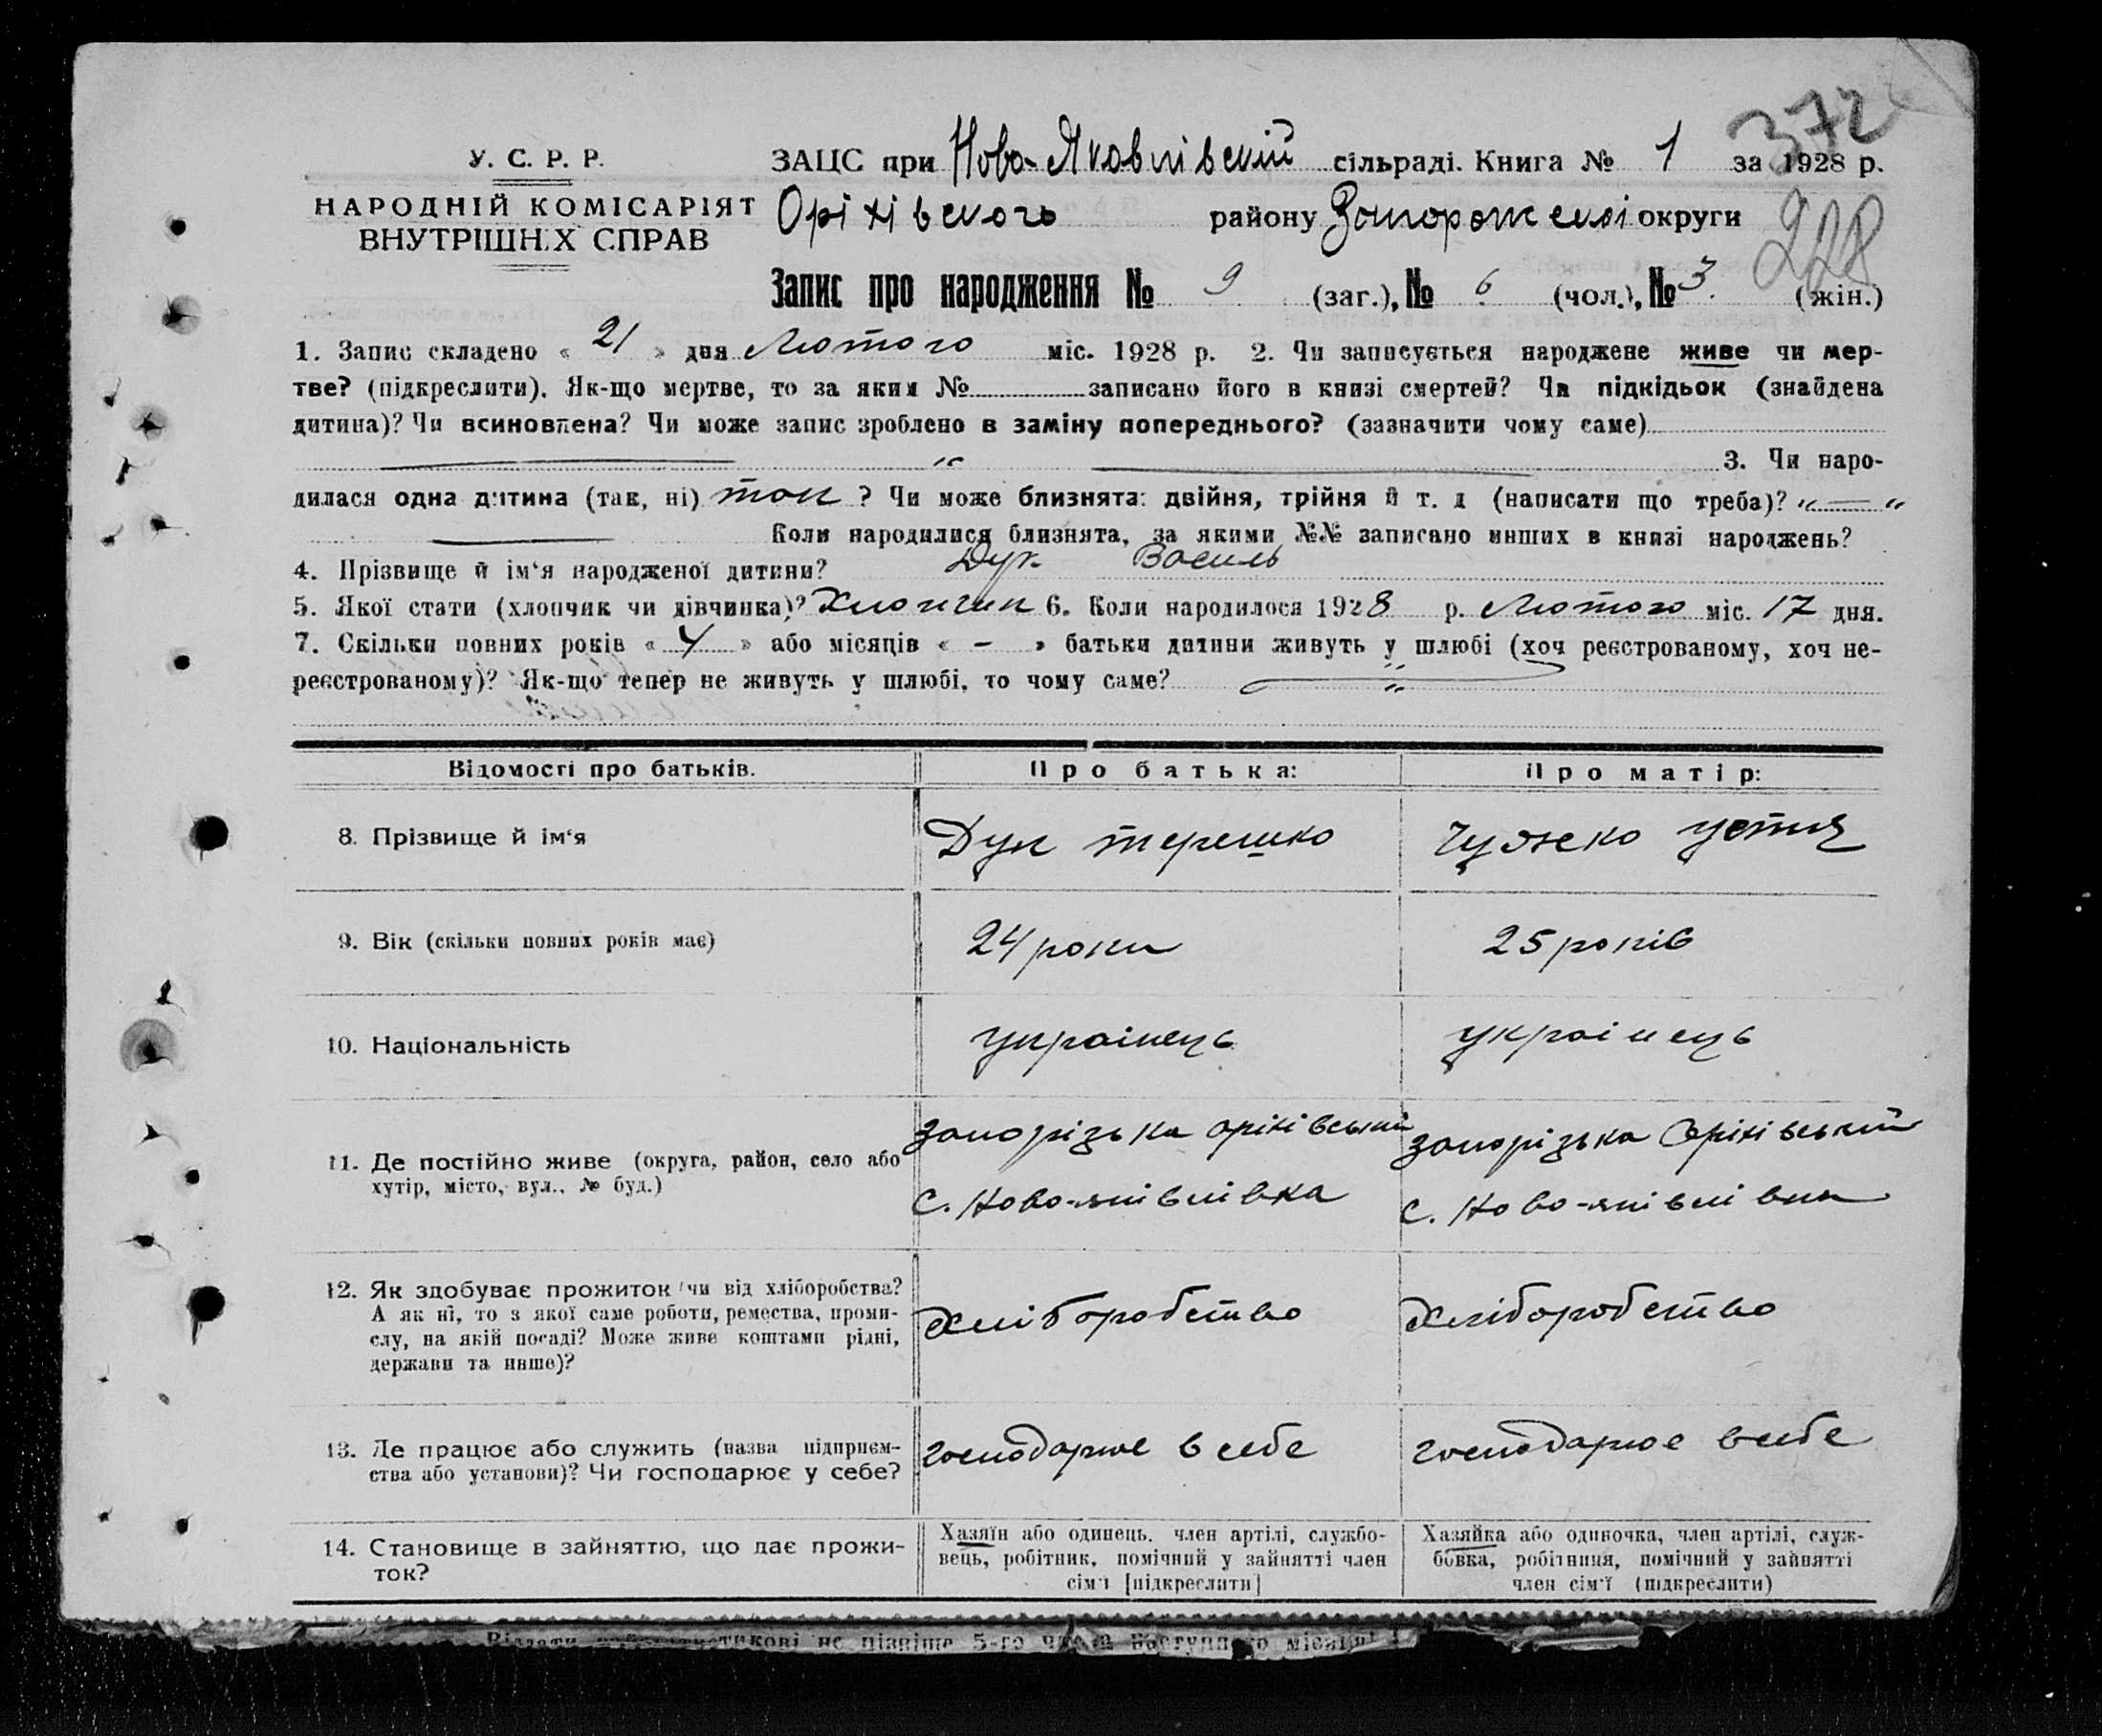 372
У. С. Р. Р.
НАРОДНІЙ КОМІСАРІЯТ
ВНУТРІШНІХ СПРАВ
ЗАЦС при Ново-Яковлівській сільраді. Книга № 1 за 1928 р.
Оріхівського району Запорожської округи
228
Запис про народження № 9 (заг.), № 6 (чол.), № 3 (жін.)
1. Запис складено « 21 » дня Лютого міс. 1928 р. 2. Чи записується народжене живе чи мер-
тве? (підкреслити). Як-що мертве, то за яким № записано його в книзі смертей? Чи підкідьок (знайдена
дитина)? Чи всиновлена? Чи може запис зроблено в заміну попереднього? (зазначити чому саме)
— " — 3. Чи наро-
дилася одна дитина (так, ні) так ? Чи може близнята: двійня, трійня й т. д (написати що треба)? „ — “
— Коли народилися близнята, за якими №№ записано инших в книзі народжень?
4. Прізвище й ім‘я народженої дитини? Дук Василь
5. Якої стати (хлопчик чи дівчинка)? Хлопчик 6. Коли народилося 1928 р. Лютого міс. 17 дня.
7. Скільки повних років « 4 » або місяців « - » батьки дитини живуть у шлюбі (хоч реєстрованому, хоч не-
реєстрованому)? Як-що тепер не живуть у шлюбі, то чому саме? — " —
Відомості про батьків. Про батька: Про матір:
8. Прізвище й ім‘я Дук терешко Чужеко устия
9. Вік (скільки повних років має) 24 роки 25 років
10. Національність українець українець
11. Де постійно живе (округа, район, село або запорізька оріхівський запорізька Оріхівський
хутір, місто, вул., № буд.) с. Ново-яківлівка с. Ново-яківлівка
12. Як здобуває прожиток чи від хліборобства? хліборобство хліборобство
А як ні, то з якої саме роботи, ремества, проми-
слу, на якій посаді? Може живе коштами рідні,
держави та инше)?
13. Де працює або служить (назва підприєм- господарює в себе господарює в себе
ства або установи)? Чи господарює у себе?
14. Становище в зайняттю, що дає прожи-
ток?
Хазяїн або одинець. член артілі, службо-
вець, робітник, помічний у зайнятті член
сім‘ї [підкреслити]
Хазяйка або одиночка, член артілі, служ-
бовка, робітниця, помічний у зайнятті
член сім‘ї (підкреслити)
не пізніше 5-го числа наступного місяця!